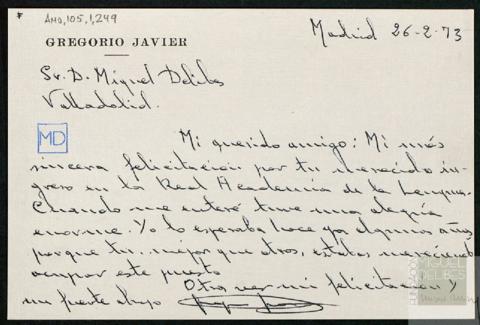 AMD,105,1,249
GREGORIO JAVIER
Madrid 26-2-73
Sr. D. Miguel Delibes
Valladolid.
MD
Mi querido amigo: Mi más
sincera felicitación por tu merecido in-
greso en la Real Academia de la Lengua.
Cuando me enteré tuve una alegría
enorme. Yo lo esperaba hace ya algunos años
porque tu, mejor que otros, estabas
ocupar este puesto
Otra vez mi felicitación y
un fuerte abrazo
FUNDACIÓN
MIGUEL
DELIBES